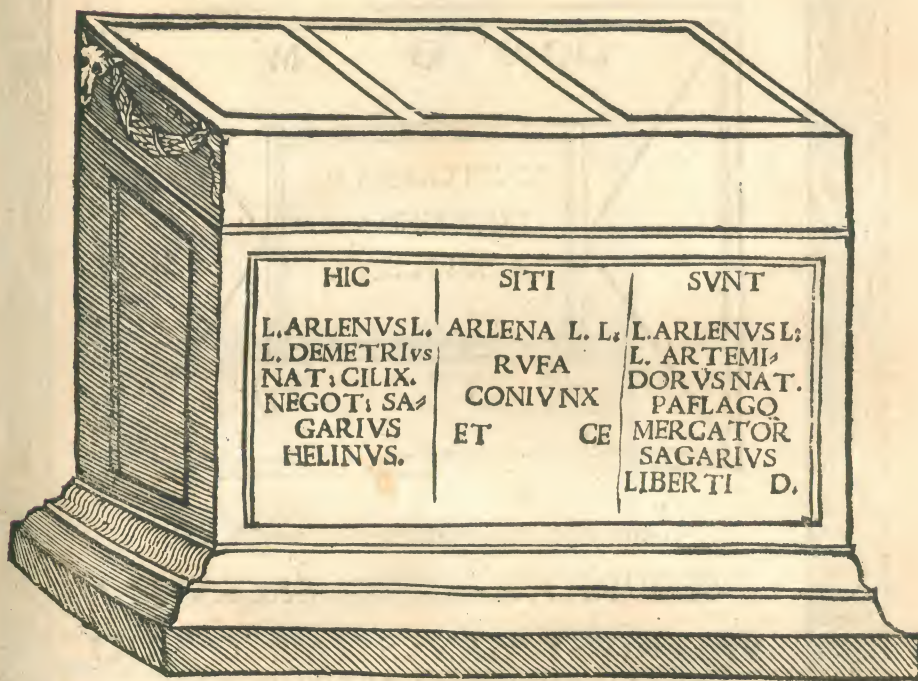 HIC
L. ARLENVS L.
L. DEMETRIVS
NAT: CILIX.
NEGOT: SA=
GARIVS
HELINVS.
SITI
ARLENA L. L:
RVFA
CONIVNX
ET CE
SVNT
L. ARLENVS L:
L. ARTEMI=
DORVS NAT.
PAFLAGO
MERCATOR
SAGARIVS
LIBERTI D.